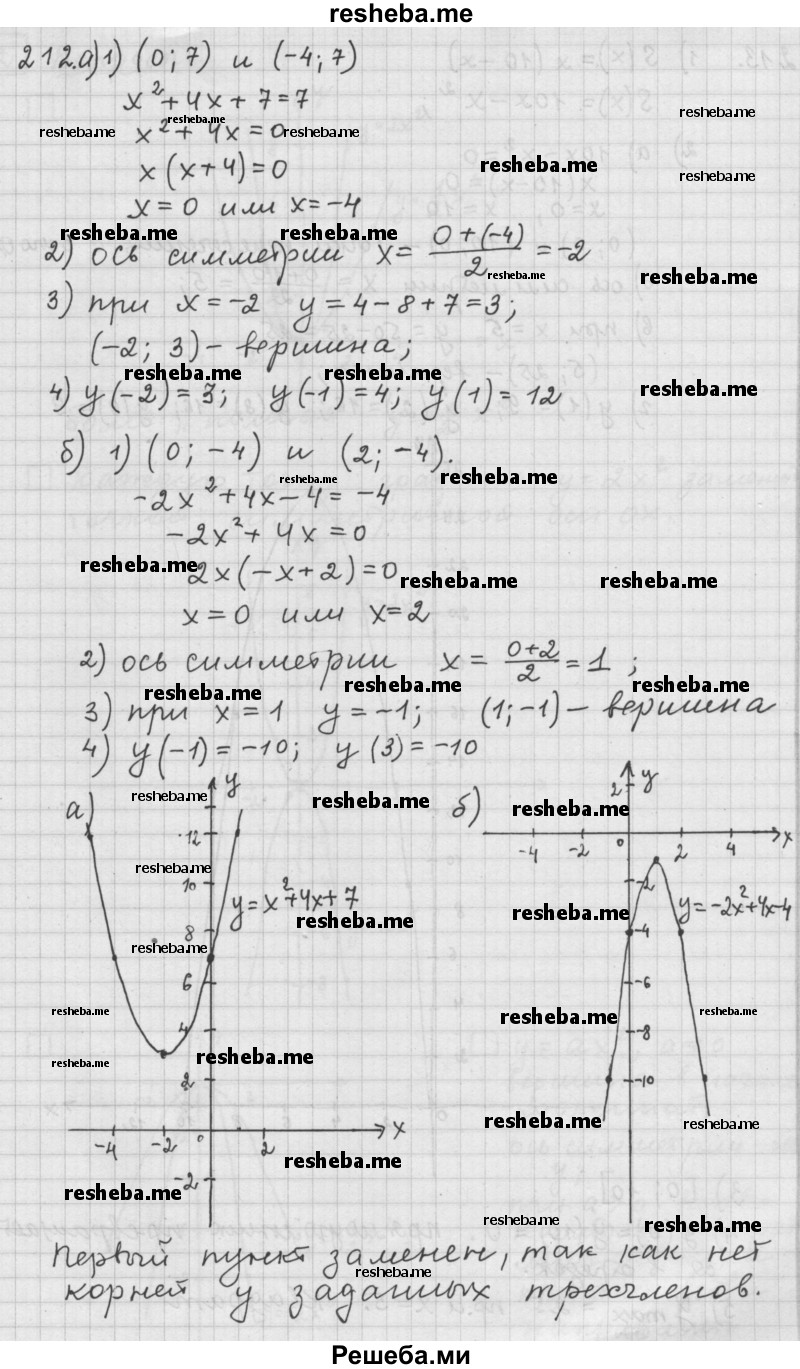 resheba.me
212.а)1) (0; 7) и (-4; 7)
x²+4x+7=7
resheba.me
resheba.me x²+4x=0 resheba.me resheba.me
x(x+4)=0 resheba.me resheba.me
x=0 или x=-4
resheba.me resheba.me
2) ось симметрии x= (0+(-4))/2 =-2
resheba.me resheba.me
3) при x=-2 y=4-8+7=3;
(-2; 3)-вершина;
resheba.me resheba.me resheba.me
4) y(-2)=3; y(-1)=4; y(1)=12
б) 1) (0; -4) и (2; -4).
resheba.me resheba.me
-2x²+4x-4=-4
-2x²+4x=0
resheba.me 2x(-x+2)=0 resheba.me resheba.me
x=0 или x=2
2) ось симметрии x= (0+2)/2 =1;
resheba.me resheba.me resheba.me
3) при x=1 y=-1; (1;-1)-вершина
4) y(-1)=-10; y(3)=-10
а) resheba.me y resheba.me б) resheba.me 2 y
12 -4 -2 0 2 4 x
resheba.me
10 -2
y=x²+4x+7 y=-2x²+4x-4
resheba.me resheba.me
8 -4
resheba.me
6 -6
resheba.me resheba.me resheba.me
4 -8
resheba.me resheba.me
2 -10
-4 -2 0 2 x resheba.me resheba.me
resheba.me
-2
resheba.me resheba.me resheba.me
Первый пункт заменен, так как нет
resheba.me
корней у заданных трехчленов.
Решеба.ми